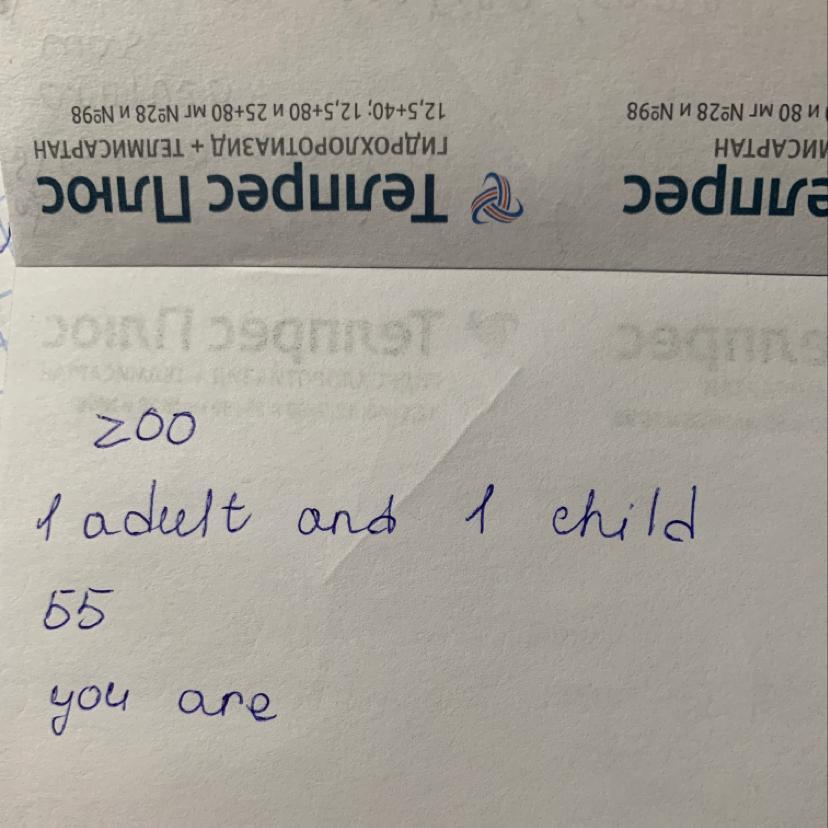 елпрес
ИСАРТАН
и 80 мг №28 и №98
Телпрес Плюс
ГИДРОХЛОРОТИАЗИД + ТЕЛМИСАРТАН
12,5+40; 12,5+80 и 25+80 мг №28 и №98
zoo
1 adult and 1 child
55
you are